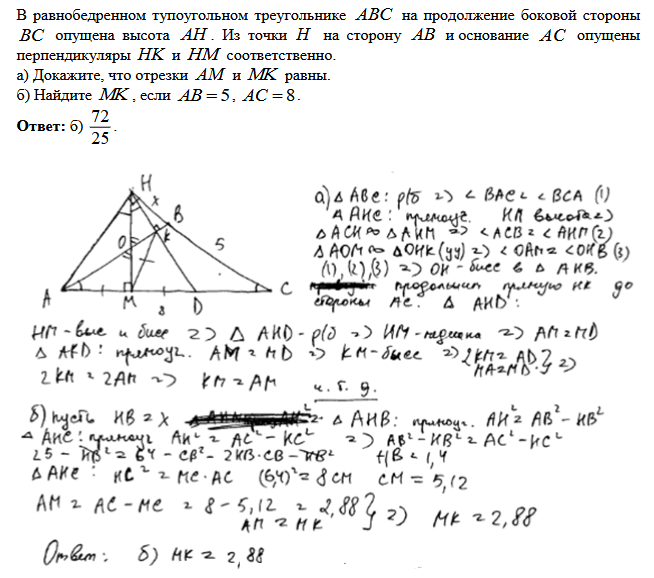 В равнобедренном тупоугольном треугольнике ABC на продолжение боковой стороны
BC опущена высота AH. Из точки H на сторону AB и основание AC опущены
перпендикуляры HK и HM соответственно.
а) Докажите, что отрезки AM и MK равны.
б) Найдите MK, если AB = 5, AC = 8.
Ответ: б) 72/25.
H
x
B
K
O
5
A
M
8
D
C
а) △ ABC: р/б => ∠ BAC = ∠ BCA (1)
△ AHC: прямоуг. HM высота =>
△ ACH ∾ △ AHM => ∠ ACB = ∠ AHM (2)
△ AOM ∾ △ OHK (уу) => ∠ OAM = ∠ OHB (3)
(1), (2), (3) => OH - бисс в △ AHB.
продолжим прямую HK до
стороны AC. △ AHD:
HM - выс и бисс => △ AHD - р/б => HM - медиана => AM = MD
△ AKD: прямоуг. AM = MD => KM - бисс => 2KM = AD } =>
MA = MD
2KM = 2AM => KM = AM ч. т. д.
б) пусть HB = x △ AHB: прямоуг. AH² = AB² - HB²
△ AHC: прямоуг AH² = AC² - HC² => AB² - HB² = AC² - HC²
25 - HB² = 64 - CB² - 2HB·CB - HB² HB = 1,4
△ AHC: HC² = MC · AC (6,4)² = 8CM CM = 5,12
AM = AC - MC = 8 - 5,12 = 2,88 } => MK = 2,88
AM = MK
Ответ: б) MK = 2,88